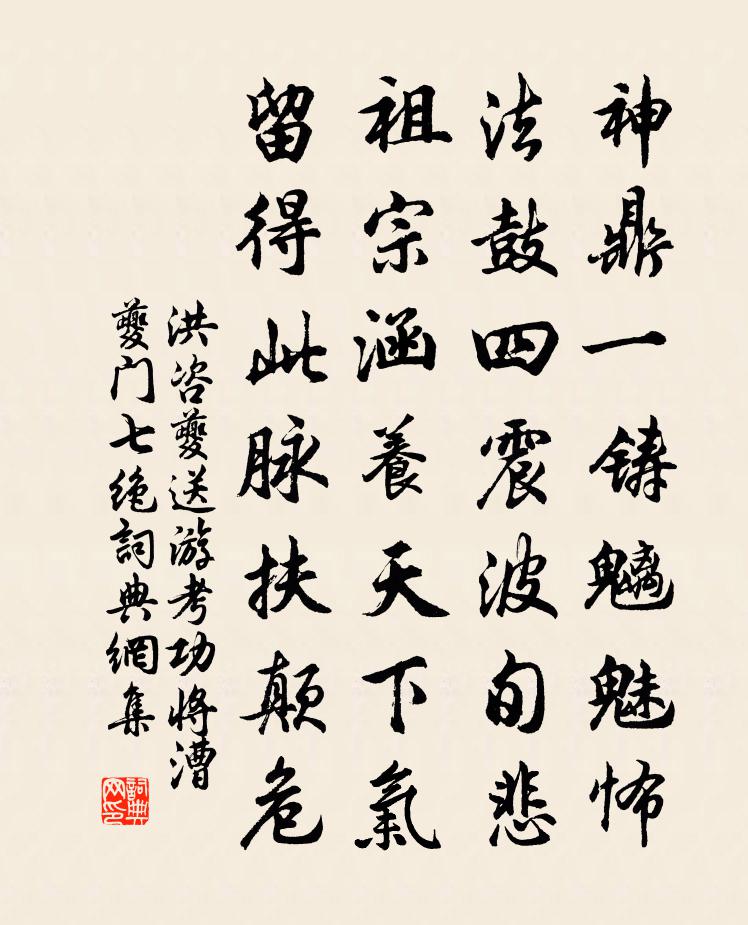 神鼎一鑄魑魅怖
法鼓四震波旬悲
祖宗涵養天下氣
留得此脉扶颠危
洪咨夔送游考功將漕
夔門七絶詞典網集
詞典网印